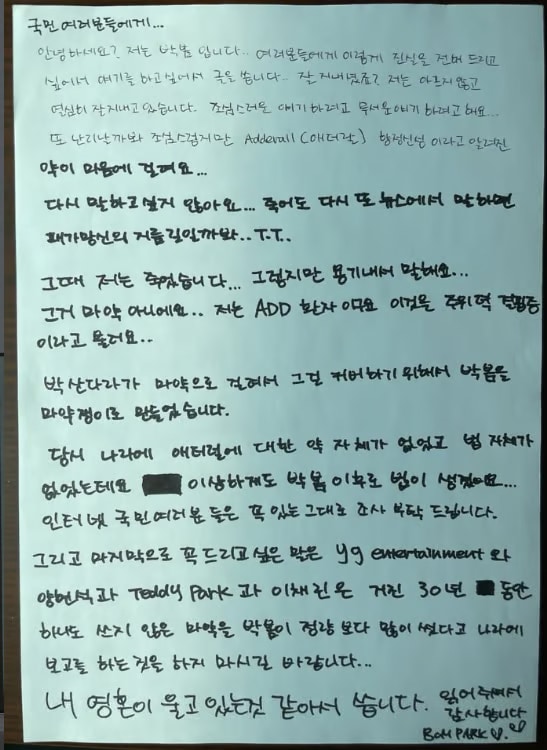 국민 여러분들에게...
안녕하세요? 저는 박봄 입니다.. 여러분들에게 이렇게 진실을 전해 드리고
싶어서 얘기를 하고싶어서 글을 씁니다.. 잘 지내셨죠? 저는 아프지 않고
열심히 잘지내고 있습니다. 조심스러운 얘기 하려고 무서운얘기 하려고 해요...
또 난리날까봐 조심스럽지만 Adderall (애더럴) 향정신성 이라고 알려진
약이 마음에 걸려요...
다시 말하고 싶지 않아요... 죽어도 다시 또 뉴스에서 말하면
패가망신의 지름길일까봐..T.T..
그때 저는 죽었습니다... 그렇지만 용기내서 말해요...
그거 마약 아니에요.. 저는 ADD 환자 이구요 이것을 주위력 결핍증
이라고 불러요..
박산다라가 마약으로 걸려서 그걸 커버하기 위해서 박봄을
마약쟁이로 만들었습니다.
당시 나라에 애터럴에 대한 약 자체가 없었고 법 자체가
없었는데요 이상하게도 박봄 이후로 법이 생겼어요...
인터넷 국민여러분 들은 꼭 있는그대로 조사 부탁 드립니다.
그리고 마지막으로 꼭 드리고 싶은 말은 yg entertainment 와
양현석과 Teddy Park 과 이채린은 거진 30년 동안
하나도 쓰지 않은 마약을 박봄이 정량 보다 많이 썼다고 나라에
보고를 하는것을 하지 마시길 바랍니다...
내 영혼이 울고 있는것 같아서 씁니다.
읽어주셔서
감사합니다
BOM PARK